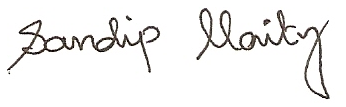 Sandip Maity